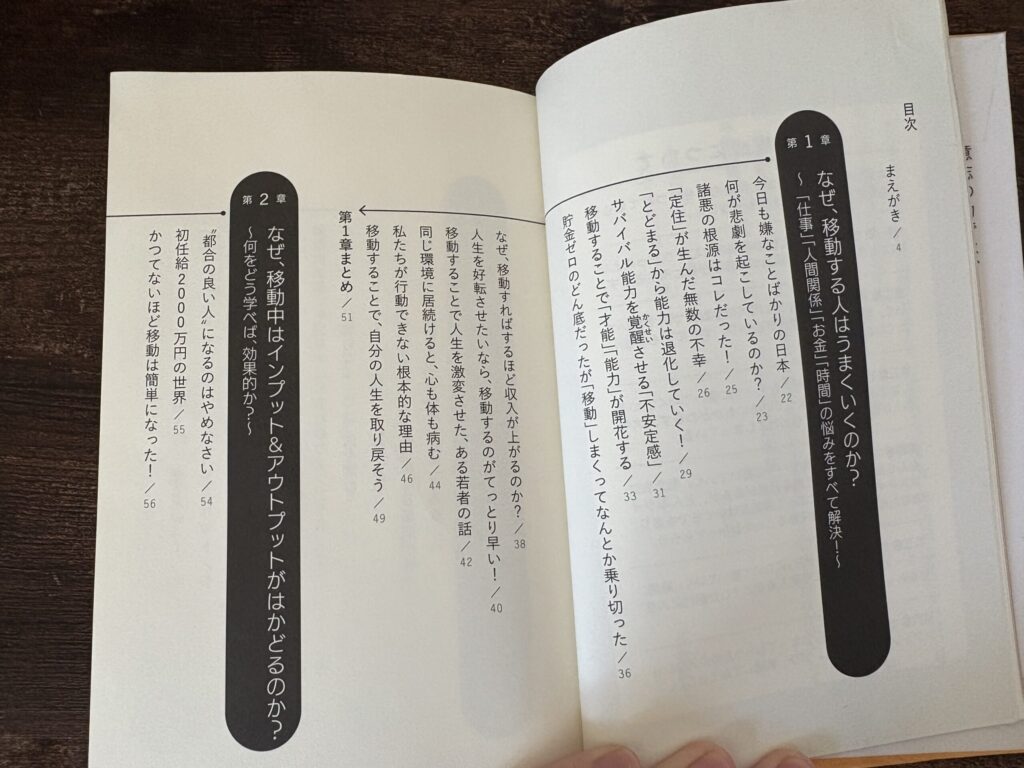 目次
まえがき／4
第1章
なぜ、移動する人はうまくいくのか？
～「仕事」「人間関係」「お金」「時間」の悩みをすべて解決！～
今日も嫌なことばかりの日本／22
何が悲劇を起こしているのか？／23
諸悪の根源はコレだった！／25
「定住」が生んだ無数の不幸／26
「とどまる」から能力は退化していく！／29
サバイバル能力を覚醒させる「不安定感」／31
かくせい
移動することで「才能」「能力」が開花する／33
貯金ゼロのどん底だったが「移動」しまくってなんとか乗り切った／36
なぜ、移動すればするほど収入が上がるのか？／38
人生を好転させたいなら、移動するのがてっとり早い！／40
移動することで人生を激変させた、ある若者の話／42
同じ環境に居続けると、心も体も病む／44
私たちが行動できない根本的な理由／46
移動することで、自分の人生を取り戻そう／49
第1章まとめ／51
第2章
なぜ、移動中はインプット＆アウトプットがはかどるのか？
～何をどう学べば、効果的か？～
〝都合の良い人〟になるのはやめなさい／54
初任給2000万円の世界／55
かつてないほど移動は簡単になった！／56